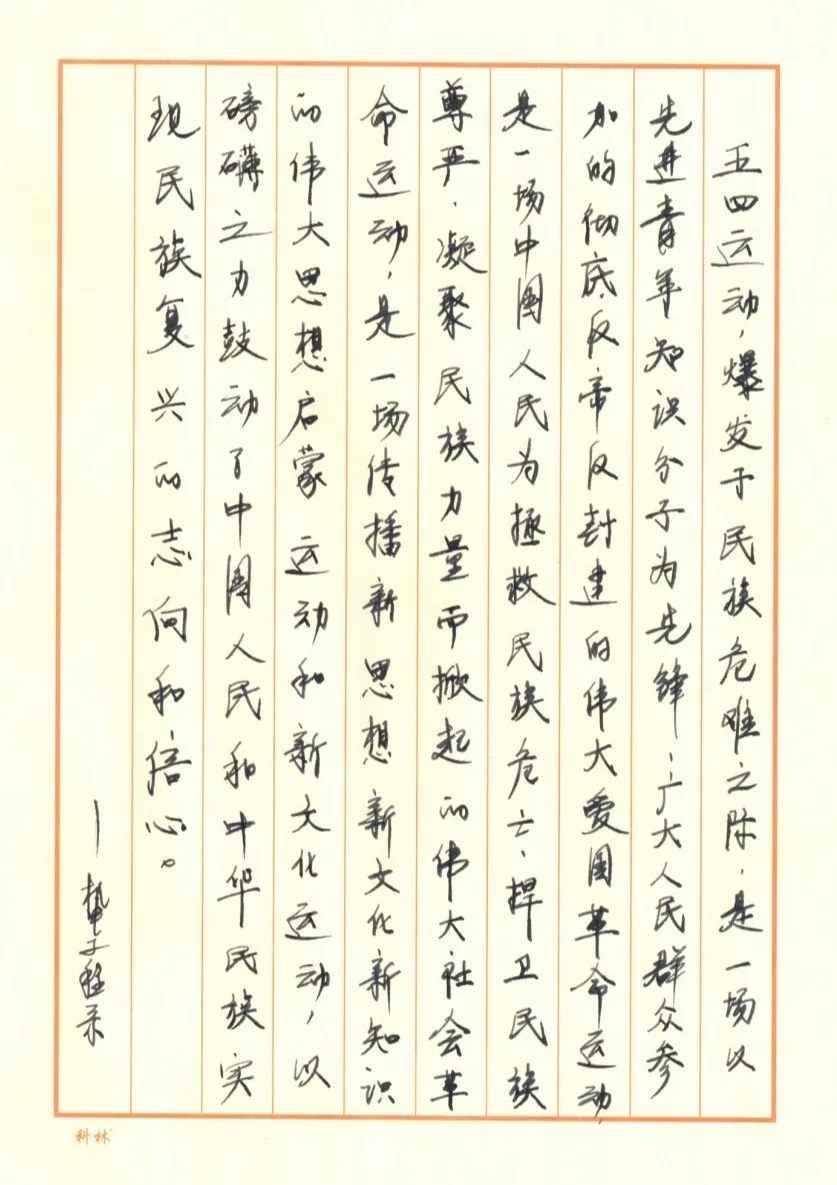 五四运动，爆发于民族危难之际，是一场以
先进青年知识分子为先锋、广大人民群众参
加的彻底反帝反封建的伟大爱国革命运动，
是一场中国人民为拯救民族危亡、捍卫民族
尊严、凝聚民族力量而掀起的伟大社会革
命运动，是一场传播新思想新文化新知识
的伟大思想启蒙运动和新文化运动，以
磅礴之力鼓动了中国人民和中华民族实
现民族复兴的志向和信心。
科林